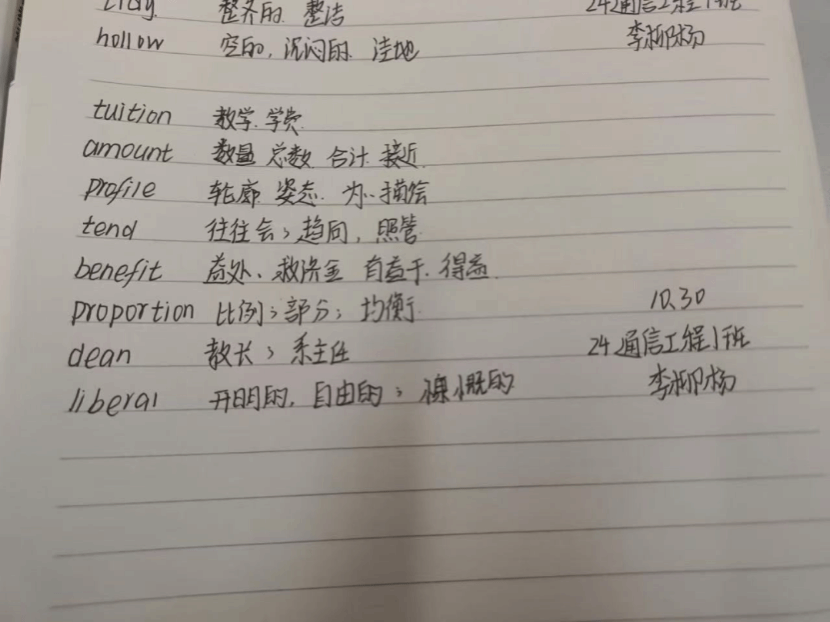 tidy 整齐的 整洁 24通信工程1班
hollow 空的, 沉闷的 洼地 李柳杨
tuition 教学. 学费
amount 数量 总数 合计 接近
profile 轮廓 姿态. 为…描绘
tend 往往会; 趋向, 照管
benefit 益处、救济金 有益于. 得益
proportion 比例; 部分; 均衡 10.30
dean 教长; 系主任 24通信工程1班
liberal 开明的, 自由的; 慷慨的 李柳杨